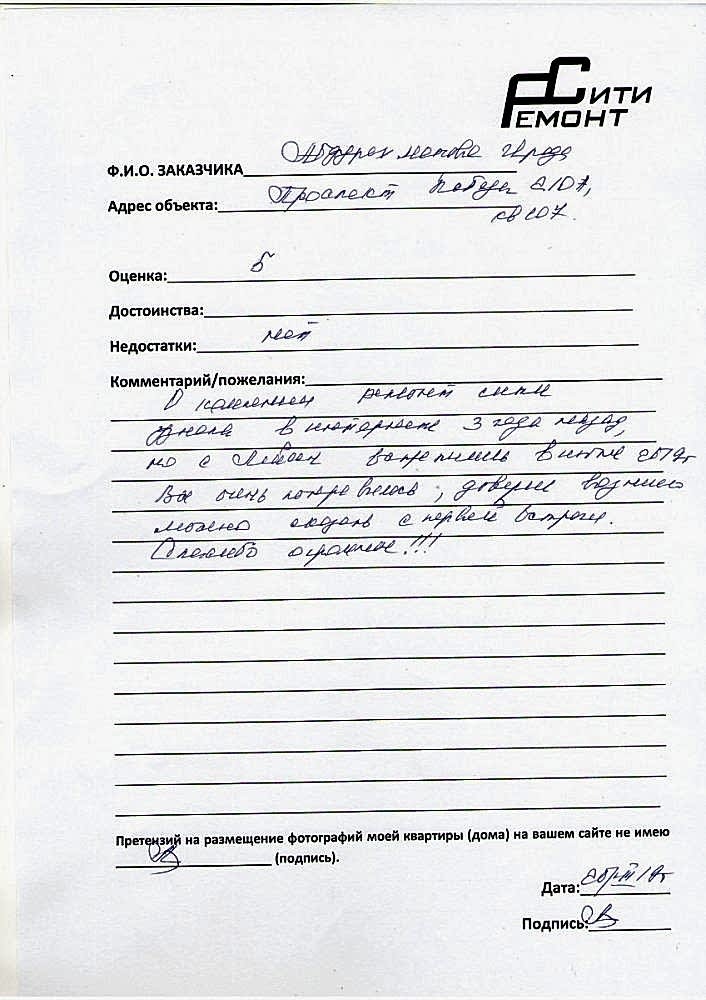 СИТИ
РЕМОНТ
Ф.И.О. ЗАКАЗЧИКА
Адрес объекта: Проспект Победы
кв 107.
Оценка: 5
Достоинства:
Недостатки: нет
Комментарий/пожелания:
О компании ремонт сити
узнала в интернете 3 года назад,
но с встретились в
Все очень понравилось, доверие возникло
можно сказать с первой встречи.
Спасибо огромное!!!
Претензий на размещение фотографий моей квартиры (дома) на вашем сайте не имею
(подпись).
Дата:
Подпись: